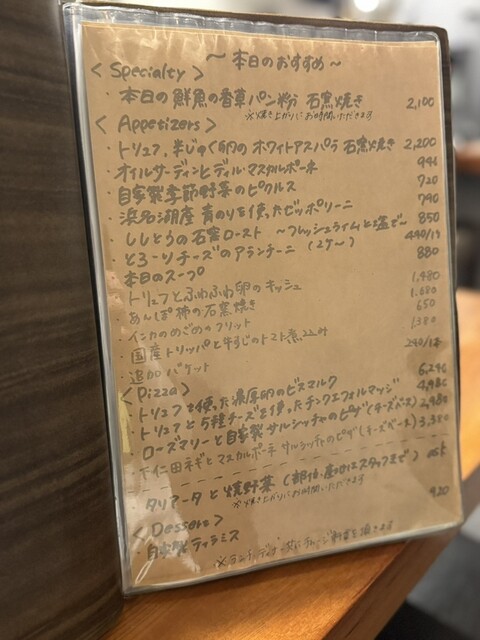 ～ 本日のおすすめ ～
< Specialty >
・本日の鮮魚の香草パン粉 石窯焼き 2,100
※焼き上がりにお時間いただきます
< Appetizers >
・トリュフ、半じゅく卵の ホワイトアスパラ 石窯焼き 2,200
・オイルサーディンとディル・マスカルポーネ
・自家製季節野菜のピクルス 720
・浜名湖産 青のりを使ったゼッポリーニ 790
・ししとうの石窯ロースト ～フレッシュライムと塩で～ 850
・とろーりチーズのアランチーニ (2ケ～)
・本日のスープ 880
・トリュフとふわふわ卵のキッシュ 1,480
・あんぽ柿の石窯焼き 1,680
・インカのめざめのフリット 650
・国産トリッパと牛すじのトマト煮込み 1,380
・追加バケット
< Pizza >
・トリュフを使った濃厚卵のビスマルク
・トリュフと5種チーズを使ったチンクエフォルマッジ
・ローズマリーと自家製サルシッチャのピザ (チーズベース)
・下仁田ネギとマスカルポーネ サルシッチャのピザ (チーズベース) 3,380
・タリアータと焼野菜 (部位・産地はスタッフまで) ask
※焼き上がりにお時間いただきます
< Dessert >
・自家製ティラミス 920